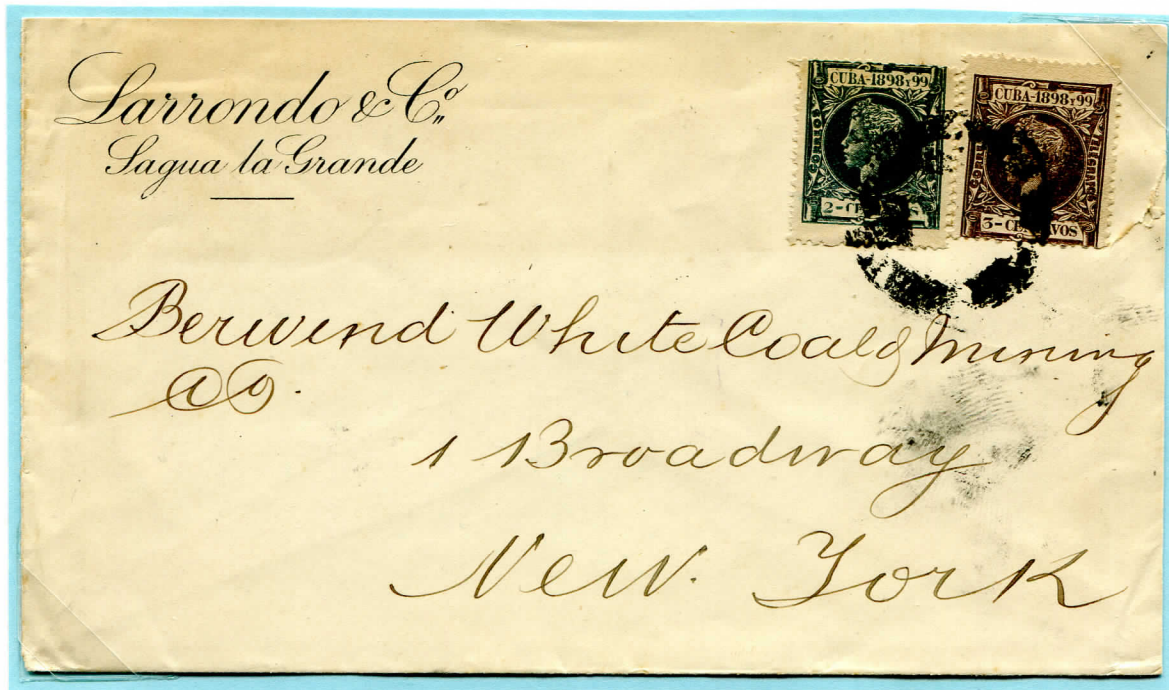 Larrondo & Cº
Sagua la Grande
CUBA-1898 y 99
CORREOS
2-CE
CUBA-1898 y 99
3-CENTAVOS
Berwind White Coal & Mining
Co.
1 Broadway
New. York